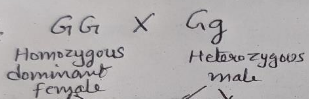 GG X Gg
Homozygous Heterozygous
dominant male
female